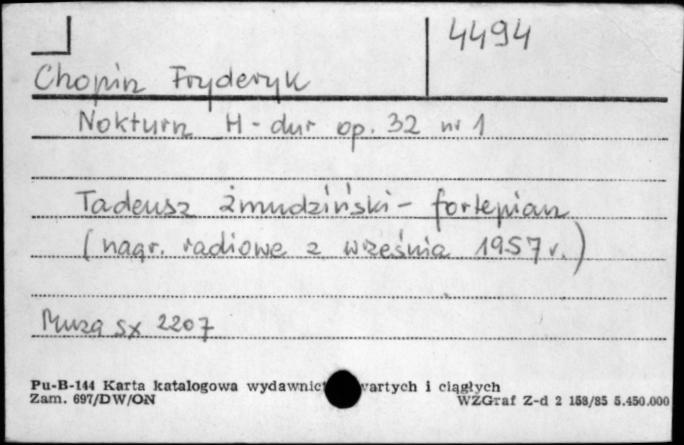 4494
Chopin Fryderyk
Nokturn H-dur op. 32 nr 1
Tadeusz Żmudziński - fortepian
(nagr. radiowe z września 1957 r.)
Muza SX 2207
Pu-B-144 Karta katalogowa wydawnict wartych i ciągłych
Zam. 697/DW/ON WZGraf Z-d 2 158/85 5.450.000